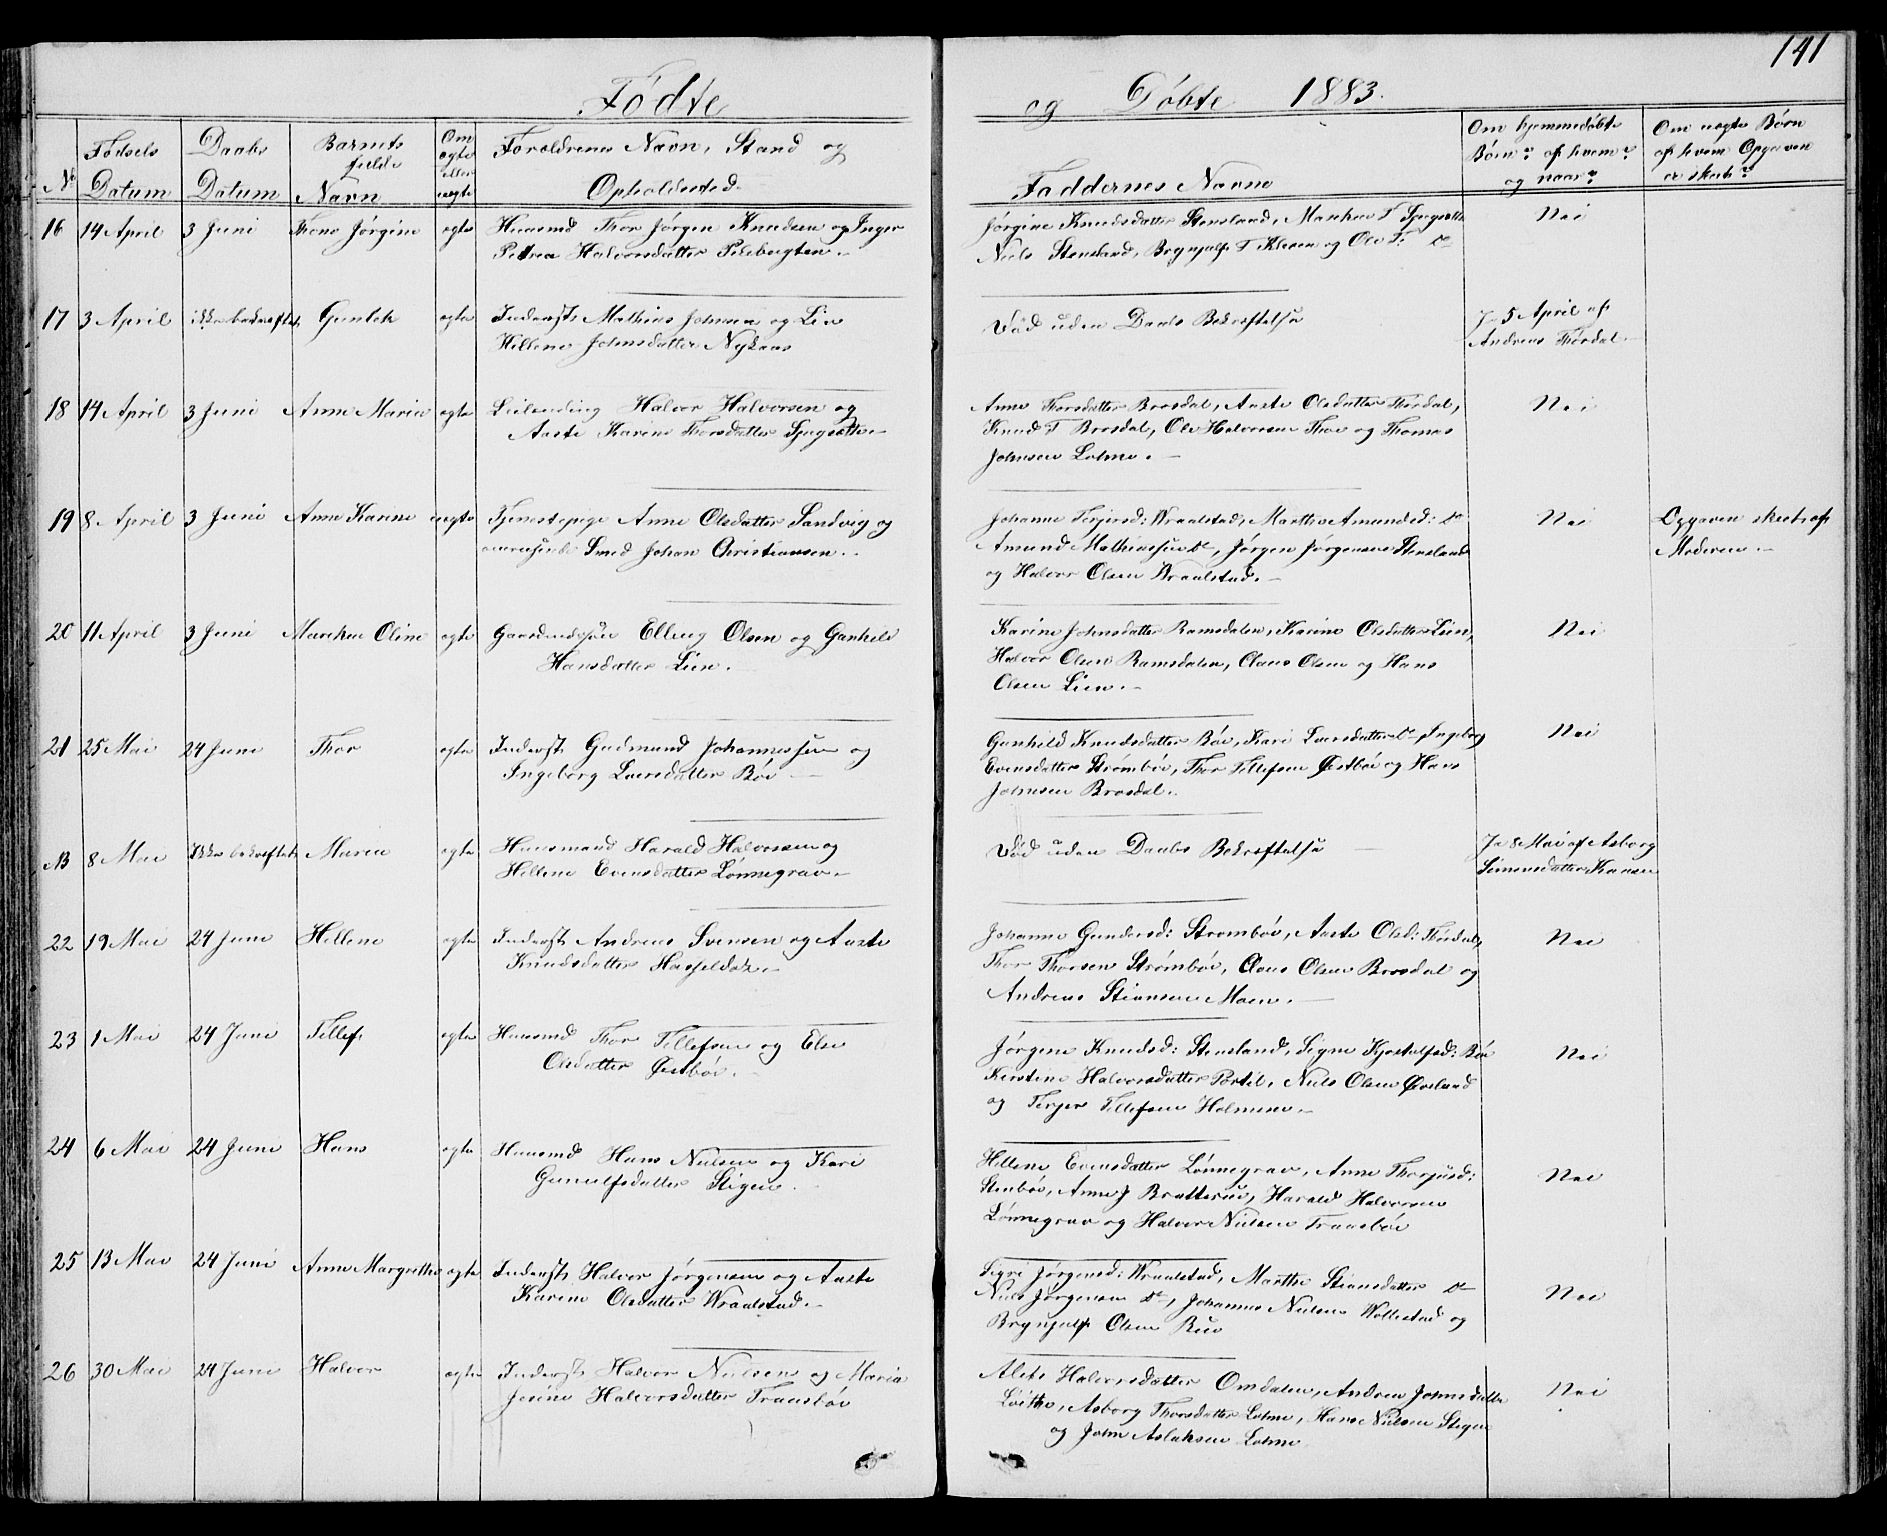 141
Fødte og Døbte 1883.
No
Fødsels Datum
Daabs Datum
Barnets fulde Navn
Om ægte eller uægte
Forældrenes Navn, Stand og Opholdssted.
Faddernes Navne
Om hjemmedøbte Børn? af hvem? og naar?
Om uægte Børn af hvem Opgaven er skeet?
16 14 April 3 Juni Thone Jørgine ægte Huusmd Thor Jørgen Knudsen og Inger
Petrea Halvorsdatter
Jørgine Knudsdatter Stensland, Marthea T
Niels Stensland, Brynjulf T Kleven og Ole T. do
Nei
17 3 April ikke bekræftet Gunlek ægte Inderst Mathias Johnsen og Lise
Hellene Johnsdatter Nykaas
Død uden Daabs Bekræftelse
Ja 5 April af
Andreas Thordal.
18 14 April 3 Juni Anne Maria ægte Leilending Halvor Halvorsen og
Aaste Karine Thorsdatter
Anne Thorsdatter Brosdal, Aaste Olsdatter Thordal,
Knud T Brosdal, Ole Halvorsen Thoe og Thomas
Johnsen Lohne. –
Nei
19 8 April 3 Juni Anne Karine uægte Tjenestepige Anne Olsdatter Sandvig og
omreisende Smed Johan Christiansen.
Johanne Terjersd: Wraalstad, Marthe Amundsd: do
Amund Mathiassen do, Jørgen Jørgensen Stensland
og Halvor Olsen Wraalstad. –
Nei
Opgaven skeet af
Moderen. –
20 11 April 3 Juni Marthea Oline ægte Gaardmandssøn Elling Olsen og Gunhild
Hansdatter Lien. –
Karine Johnsdatter Ramsdalen, Karine Olsdatter Lien,
Halvor Olsen Ramsdalen, Claus Olsen og Hans
Olsen Lien. –
Nei
21 25 Mai 24 Juni Thor ægte Inderst Gudmund Johannessen og
Ingeborg Larsdatter Bøe –
Gunhild Knudsdatter Bøe, Kari Larsdatter do Ingeborg
Evensdatter Strømbøe, Thor Tellefsen Østbøe og Hans
Johnsen Brosdal.
Nei
NB 8 Mai Ikke bekræftet Maria ægte Huusmand Harald Halvorsen og
Hellene Evensdatter Lønnegrav. –
Død uden Daabs Bekræftelse –
Ja 8 Mai af Asborg
Simonsdatter
22 19 Mai 24 Juni Hellene ægte Inderst Andreas Svensen og Aaste
Knudsdatter
Johanne Gundersd: Strømbøe, Aaste Olsd: Thordal,
Thor Thorsen Strømbøe, Claus Olsen Brosdal og
Andreas Stiansen Moen. –
Nei
23 1 Mai 24 Juni Tellef ægte Huusmd Thor Tellefsen og Else
Olsdatter Østbøe. –
Jørgine Knudsd: Stensland, Signe Kjøstolfsd: Bøe
Kirstine Halvorsdatter Portil, Niels Olsen Øvelund
og Terjer Tellefsen Holmene. –
Nei
24 6 Mai 24 Juni Hans ægte Huusmd Hans Nielsen og Kari
Gunulfsdatter Stigen. –
Hellene Evensdatter Lønnegrav, Anne Thorjusd:
Stenbøe, Anne J Bratterud, Harald Halvorsen
Lønnegrav og Halvor Nielsen Transbøe
Nei
25 13 Mai 24 Juni Anne Margrethe ægte Inderst Halvor Jørgensen og Aaste
Karine Olsdatter Wraalstad. –
Sigri Jørgensd: Wraalstad, Marthe Stiansdatter do
Niels Jørgensen do, Johannes Nielsen Wollestad og
Brynjulf Olsen Rue
Nei
26 30 Mai 24 Juni Halvor ægte Inderst Halvor Nielsen og Maria
Jesine Halvorsdatter Transbøe
Alete Halvorsdatter Omdalen, Andrea Johnsdatter
Løithe, Asborg Thorsdatter Lohne, Hans Nielsen Stigen
og John Aslaksen Lohne
Nei